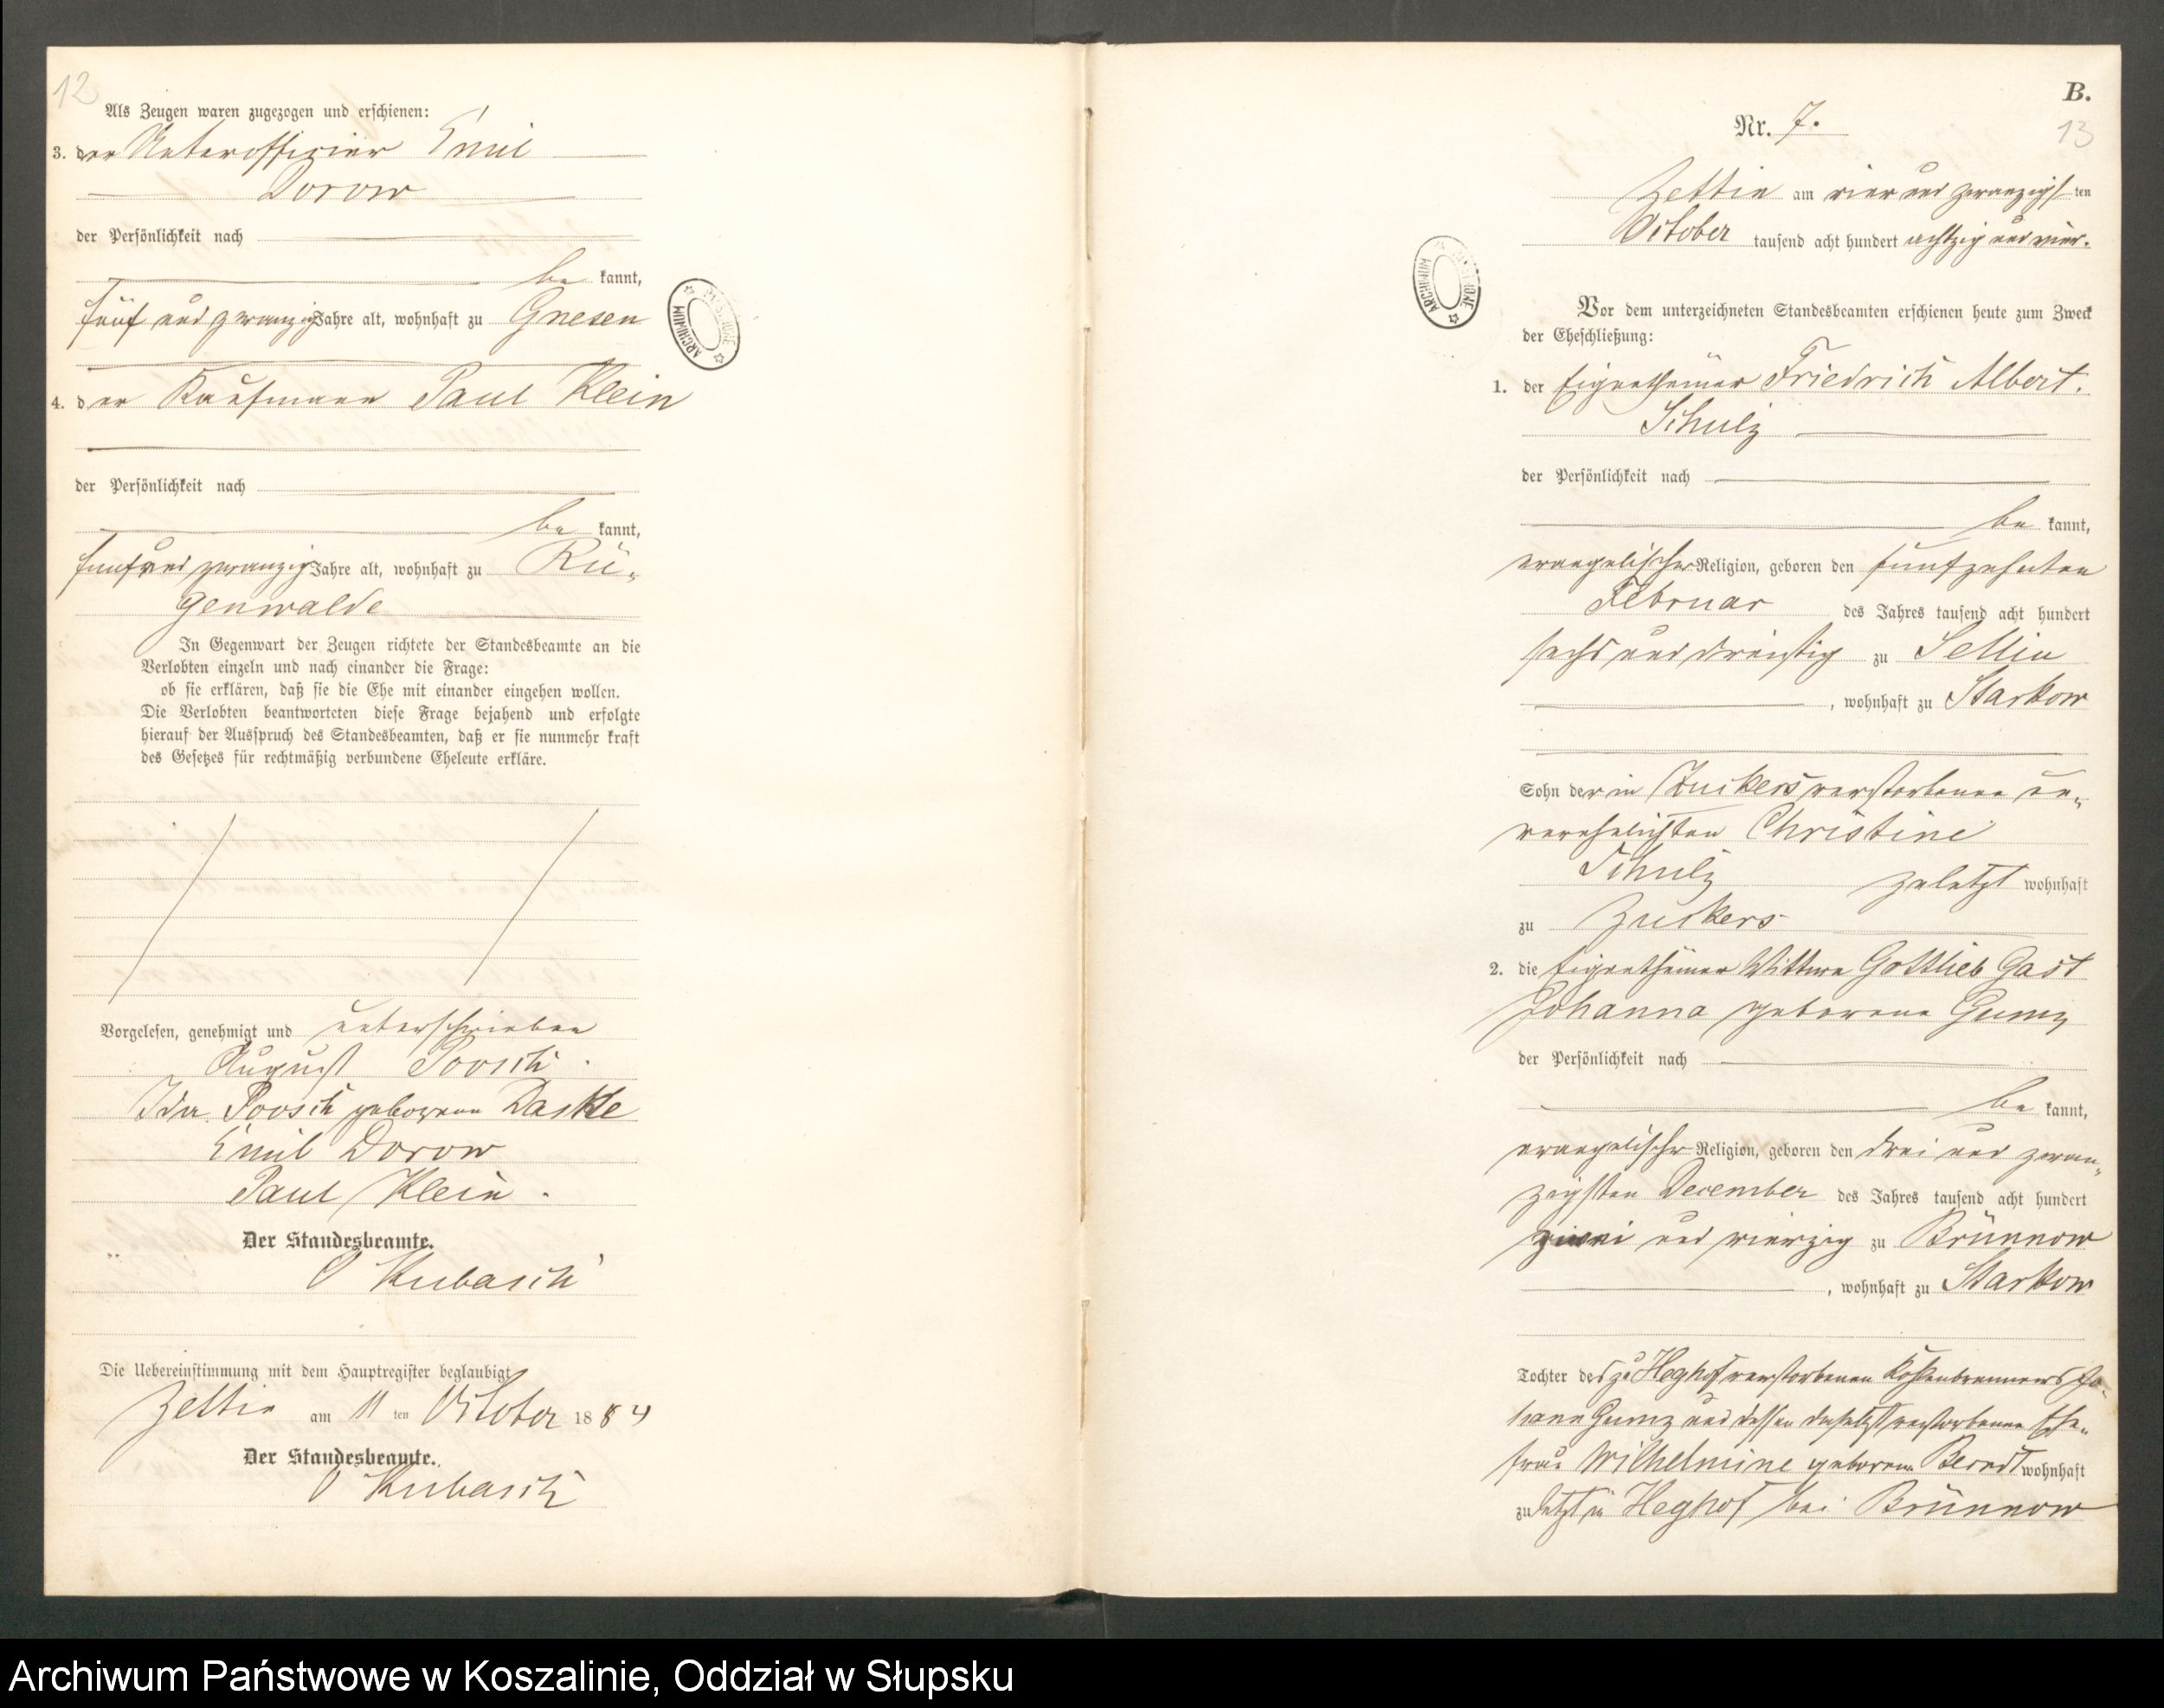 12
Als Zeugen waren zugezogen und erschienen:
3. der Unterofficier Emil
Dorow
der Persönlichkeit nach
be kannt,
fünf und zwanzig Jahre alt, wohnhaft zu Gnesen
4. der Kaufmann Paul Klein
der Persönlichkeit nach
be kannt,
fünf und zwanzig Jahre alt, wohnhaft zu Rü-
genwalde
In Gegenwart der Zeugen richtete der Standesbeamte an die
Verlobten einzeln und nach einander die Frage:
ob sie erklären, daß sie die Ehe mit einander eingehen wollen.
Die Verlobten beantworteten diese Frage bejahend und erfolgte
hierauf der Ausspruch des Standesbeamten, daß er sie nunmehr kraft
des Gesetzes für rechtmäßig verbundene Eheleute erkläre.
Vorgelesen, genehmigt und unterschrieben
August Poosch
Ida Poosch geborene
Emil Dorow
Paul Klein.
Der Standesbeamte.
Kubasch
Die Uebereinstimmung mit dem Hauptregister beglaubigt
Zettin am 11 ten October 1884
Der Standesbeamte.
Kubasch
B.
13
Nr. 7.
Zettin am vier und zwanzigsten
October tausend acht hundert achtzig und vier.
Vor dem unterzeichneten Standesbeamten erschienen heute zum Zweck
der Eheschließung:
1. der Eigenthümer Friedrich Albert
Schulz
der Persönlichkeit nach
be kannt,
evangelischer Religion, geboren den fünfzehnten
Februar des Jahres tausend acht hundert
sechs und dreißig zu Sellin
, wohnhaft zu Starkow
Sohn der in Zuckers verstorbenen un-
verehelichten Christine
Schulz zuletzt wohnhaft
zu Zuckers
2. die Eigenthümer Wittwe Gottlieb Gast
Johanna geborene Gumz
der Persönlichkeit nach
be kannt,
evangelischer Religion, geboren den drei und zwan-
zigsten December des Jahres tausend acht hundert
zwei und vierzig zu Brünnow
, wohnhaft zu Starkow
Tochter des zu Heghof verstorbenen Kohlenbrenners Jo-
hann Gumz und dessen daselbst verstorbenen Ehe-
frau Wilhelmine geborene Berndt wohnhaft
zuletzt in Heghof bei Brünnow
Archiwum Państwowe w Koszalinie, Oddział w Słupsku